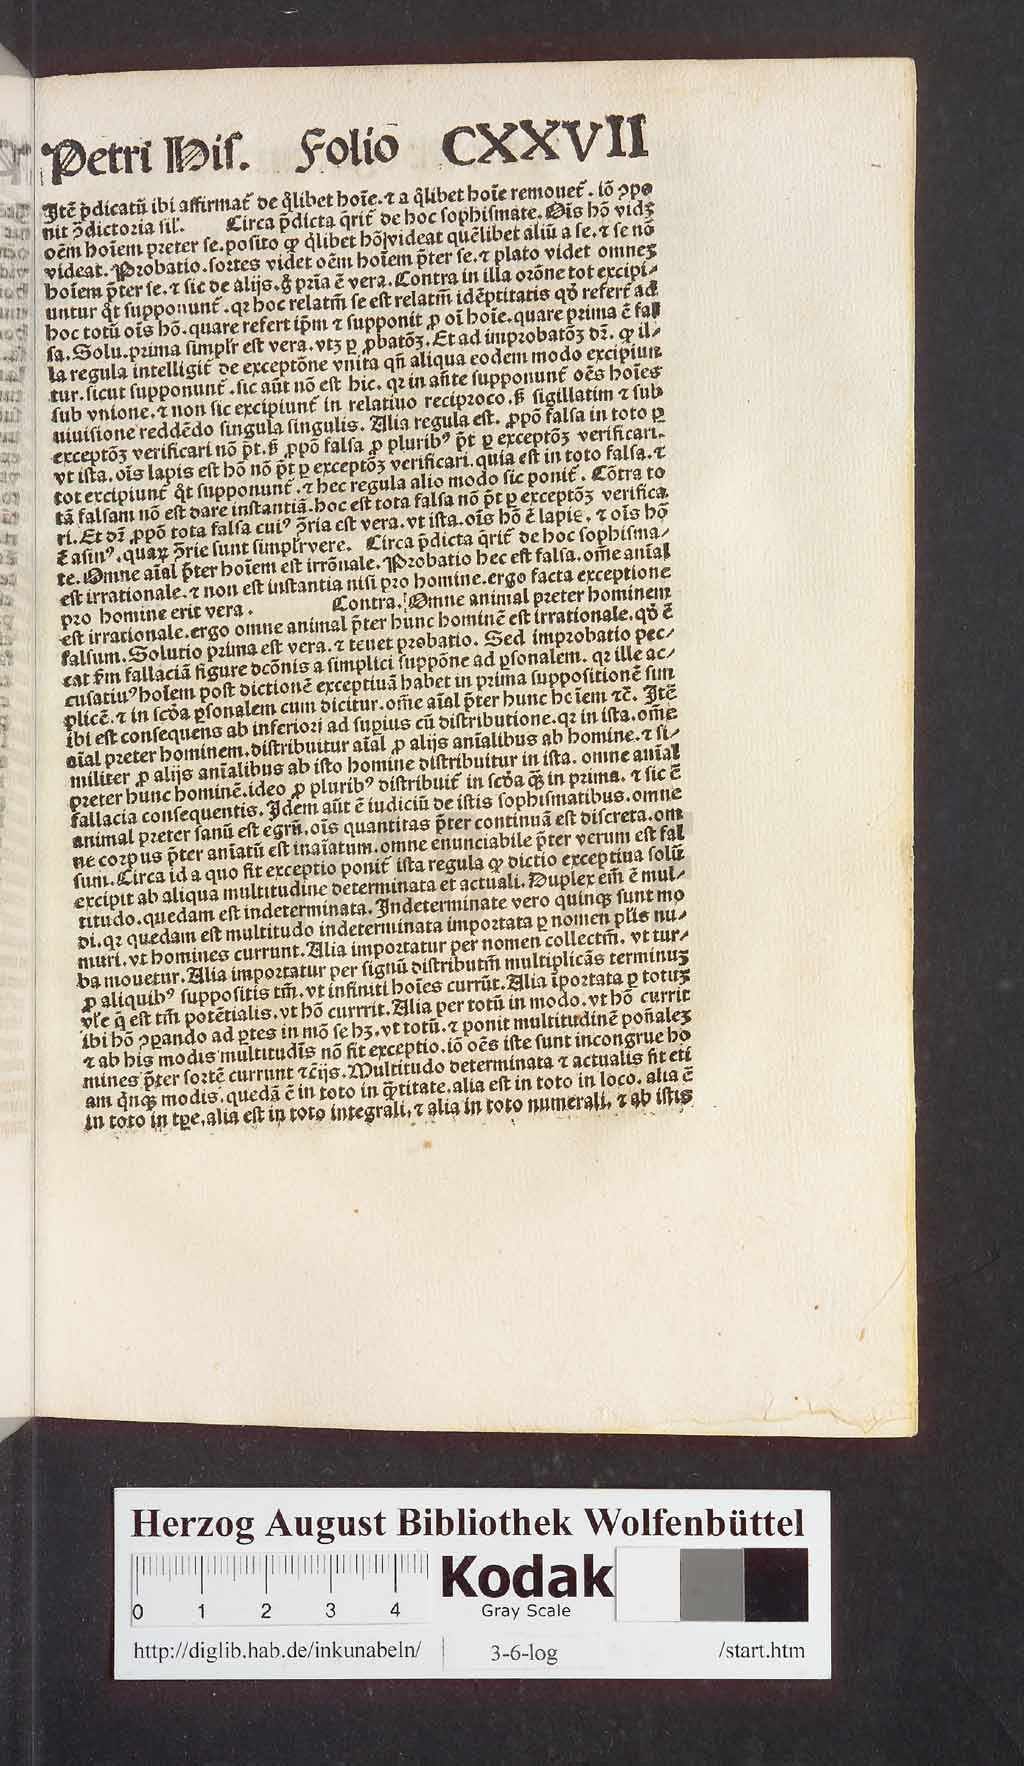 Petri His. Folio CXXVII
Itē p̄dicatū ibi affirmat̄ de q̄libet hoīe. ⁊ a q̄libet hoīe remouet̄. iō ꝯpo
nit ꝯ̄dictoria sil'. Circa p̄dicta q̄rit̄ de hoc sophismate. Oīs hō vidꝫ
oēm hoīem preter se. posito ꝙ q̄libet hō videat quēlibet aliū a se. ⁊ se nō
videat. Probatio. sortes videt oēm hoīem p̄ter se. ⁊ plato videt omneꝫ
hoīem p̄ter se. ⁊ sic de alijs. g̊ pria ē vera. Contra in illa orōne tot excipi⸗
untur q̄t supponunt̄. qꝛ hoc relatm̄ se est relatm̄ idēptitatis qd̊ refert̄ ad
hoc totū oīs hō. quare refert ip̄m ⁊ supponit ꝓ oī hoīe. quare prima ē fal
sa. Solu. prima simpl'r est vera. vtꝫ ꝑ ꝓbatōꝫ. Et ad improbatōꝫ dꝛ̄. ꝙ il⸗
la regula intelligit̄ de exceptōne vnita qn̄ aliqua eodem modo excipiun
tur. sicut supponunt̄. sic aūt nō est hic. qꝛ in an̄te supponunt̄ oēs hoīes
sub vnione. ⁊ non sic excipiunt̄ in relatiuo reciproco. sꝫ sigillatim ⁊ sub
diuisione reddēdo singula singulis. Alia regula est. ꝓpō falsa in toto ꝑ
exceptōꝫ verificari nō p̄t. sꝫ ꝓpō falsa ꝓ pluribꝰ p̄t ꝑ exceptōꝫ verificari.
vt ista. oīs lapis est hō nō p̄t ꝑ exceptōꝫ verificari. quia est in toto falsa. ⁊
tot excipiunt̄ q̄t supponunt̄. ⁊ hec regula alio modo sic ponit̄. Cōtra to
tā falsam nō est dare instantiā. hoc est tota falsa nō p̄t ꝑ exceptōꝫ verifica
ri. Et dꝛ̄ ꝓpō tota falsa cuiꝰ ꝯ̄ria est vera. vt ista. oīs hō ē lapis. ⁊ oīs hō
ē asinꝰ. quaꝝ ꝯ̄rie sunt simpl'r vere. Circa p̄dicta q̄rit̄ de hoc sophisma⸗
te. Omne aīal p̄ter hoīem est irrōnale. Probatio hec est falsa. om̄e anīal
est irrationale. ⁊ non est instantia nisi pro homine. ergo facta exceptione
pro homine erit vera. Contra. Omne animal preter hominem
est irrationale. ergo omne animal p̄ter hunc hominē est irrationale. qd̊ ē
falsum. Solutio prima est vera. ⁊ tenet probatio. Sed improbatio pec⸗
cat scd̄m fallaciā figure dcōnis a simplici suppōne ad ꝑsonalem. qꝛ ille ac⸗
cusatiuꝰ hoīem post dictionē exceptiuā habet in prima suppositionē sim
plicē. ⁊ in scd̊a ꝑsonalem cum dicitur. om̄e aīal p̄ter hunc hoīem ⁊c̄. Itē
ibi est consequens ab inferiori ad suꝑius cū distributione. qꝛ in ista. om̄e
aīal preter hominem. distribuitur aīal ꝓ alijs anīalibus ab homine. ⁊ si⸗
militer ꝓ alijs anīalibus ab isto homine distribuitur in ista. omne anīal
preter hunc hominē. ideo ꝓ pluribꝰ distribuit̄ in scd̊a qꝫ̄ in prima. ⁊ sic ē
fallacia consequentis. Idem aūt ē iudiciū de istis sophismatibus. omne
animal preter sanū est egrū. oīs quantitas p̄ter continuā est discreta. om
ne corpus p̄ter aniātū est inaīatum. omne enunciabile p̄ter verum est fal
sum. Circa id a quo fit exceptio ponit̄ ista regula ꝙ dictio exceptiua solū
excipit ab aliqua multitudine determinata et actuali. Duplex em̄ ē mul⸗
titudo. quedam est indeterminata. Indeterminate vero quinqꝫ sunt mo
di. qꝛ quedam est multitudo indeterminata importata ꝑ nomen pl'is nu⸗
muri. vt homines currunt. Alia importatur per nomen collectm̄. vt tur⸗
ba mouetur. Alia importatur per signū distributm̄ multiplicās terminuꝫ
ꝓ aliquibꝰ suppositis tm̄. vt infiniti hoīes currūt. Alia īportata ꝑ totuꝫ
vl'e q̄ est tm̄ potētialis. vt hō currrit. Alia per totū in modo. vt hō currit
ibi hō ꝯꝑando ad ꝑtes in mō se hꝫ. vt totū. ⁊ ponit multitudinē poñaleꝫ
⁊ ab his modis multitudīs nō fit exceptio. iō oēs iste sunt incongrue ho
mines p̄ter sortē currunt ⁊c̄ijs. Multitudo determinata ⁊ actualis fit eti
am q̄nqꝫ modis. quedā ē in toto in q̄titate. alia est in toto in loco. alia ē
in toto in tꝑe. alia est in toto integrali. ⁊ alia in toto numerali. ⁊ ab istis
Herzog August Bibliothek Wolfenbüttel
0 1 2 3 4
Kodak
Gray Scale
http://diglib.hab.de/inkunabeln/ 3-6-log /start.htm